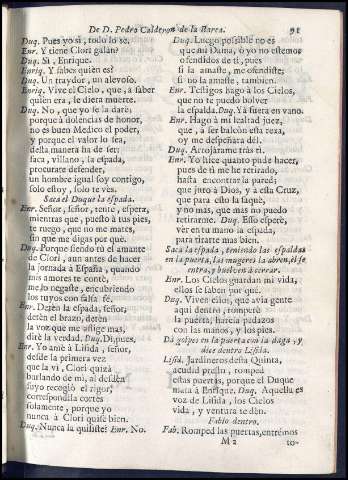 De D. Pedro Calderon de la Barca. 91
Duq. Pues yo si, todo lo sè.
Enr. Y tiene Clori galàn?
Duq. Si, Enrique.
Enriq. Y sabes quien es?
Duq. Un traydor, un alevoso.
Enriq. Vive el Cielo, que, à saber
quien era, le diera muerte.
Duq. No, que yo se la darè;
porque à dolencias de honor,
no es buen Medico el poder,
y porque el valor lo sea,
desta manera ha de ser:
saca, villano, la espada,
procurate defender,
un hombre igual soy contigo,
solo estoy, solo te vès.
Saca el Duque la espada.
Enr. Señor, señor, tente, espera,
mientras que, puesto à tus pies,
te ruego, que no me mates,
sin que me digas por què.
Duq. Porque siendo tù el amante
de Clori, aun antes de hacer
la jornada à España, quando
mis amores te contè,
me lo negaste, encubriendo
los tuyos con falsa fé.
Enr. Detèn la espada, señor,
detèn el brazo, detèn
la voz, que me aflige mas,
dirè la verdad. Duq. Di, pues.
Enr. Yo amè à Lisida, señor,
desde la primera vez
que la vi, Clori quizà
burlando de mi, al desdèn
suyo recogiò el rigor,
correspondila cortès
solamente, porque yo
nunca à Clori quise bien.
Duq. Nunca la quisiste? Enr. No.
Duq. Luego possible no es
que mi Dama, ò yo no estemos
ofendidos de ti, pues
si la amaste, me ofendiste;
si no la amaste, tambien.
Enr. Testigos hago à los Cielos,
que no te puedo bolver
la espalda. Duq. Yà fuera en vano.
Enr. Hago à mi lealtad juez,
que, à ser balcòn esta rexa,
oy me despeñara dèl.
Duq. Arrojàrame tràs ti.
Enr. Yo hice quanto pude hacer,
pues de ti me he retirado,
hasta encontrar la parèd:
que juro à Dios, y à esta Cruz,
que para esto la saquè,
y no mas, que mas no puedo
retirarme. Duq. Esso esperè,
ver en tu mano la espada,
para tirarte mas bien.
Saca la espada, teniendo las espaldas
en la puerta, las mugeres la abren, el se
entra, y buelven à cerrar.
Enr. Los Cielos guardan mi vida,
ellos se saben por què.
Duq. Viven ellos, que avia gente
aqui dentro, romperè
la puerta, harèla pedazos
con las manos, y los pies.
Dà golpes en la puerta con la daga, y
dice dentro Lisida.
Lisid. Jardineros desta Quinta,
acudid presto, romped
estas puertas, porque el Duque
mata à Enrique. Duq. Aquella es
voz de Lisida, los Cielos
vida, y ventura te dèn.
Fabio dentro.
Fab. Romped las puertas, entrèmos
M 2 to-